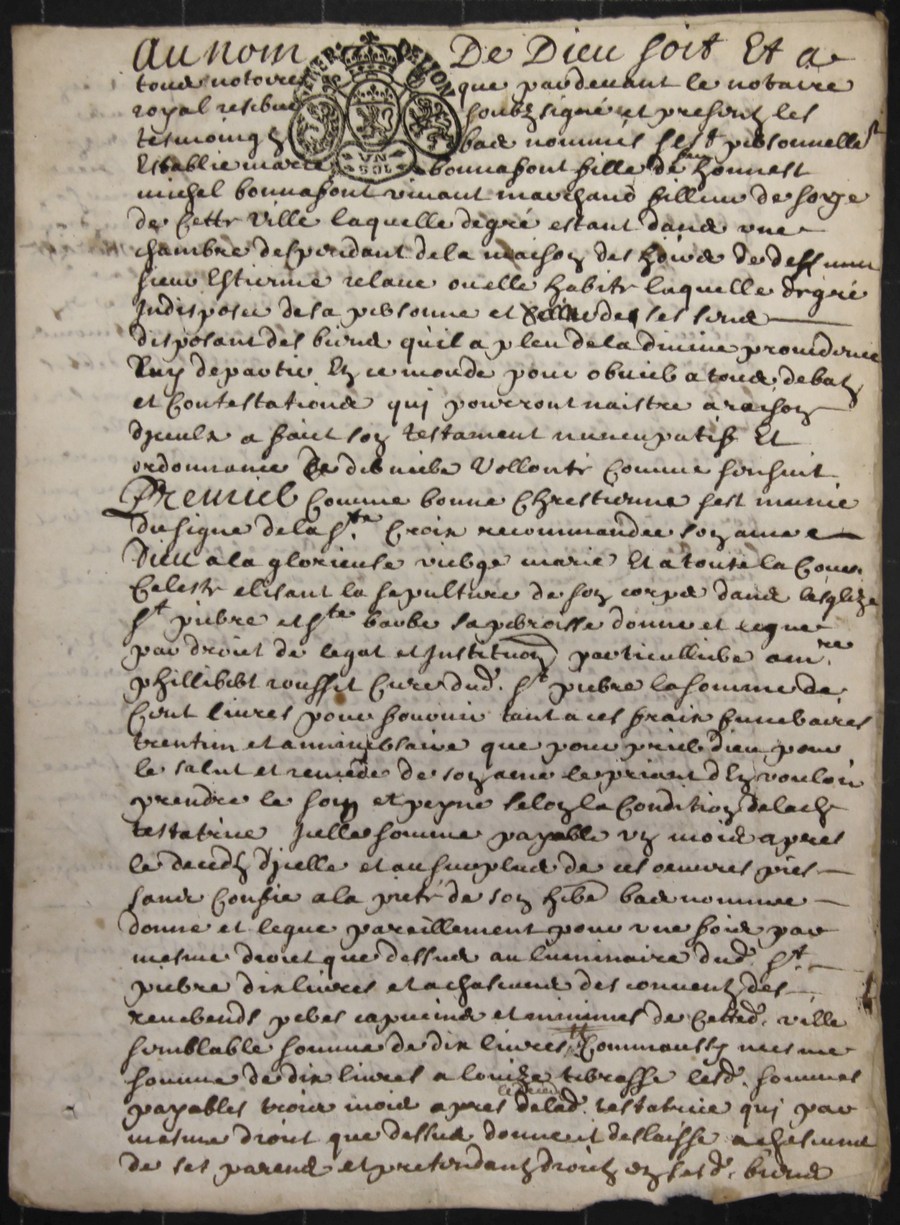 Au nom De Dieu soit Et a
tous notoire que pardevant le notaire
royal reserve soubzsigné et presentz les
tesmoingz bas nommés s'est personnelle.t
Establie marie bonnafont fille de honnest
michel bonnafont vivant marchand de forge
de Cette Ville laquelle de gré estant dans une
chambre despendant de la maison des hoirs de deffunt
sieur Estienne ou elle habite laquelle de gré
Indisposée de sa personne et de ses sens
disposant des biens qu'il a pleu de la divine providence
luy departir En ce monde pour obvier a tous debatz
et Contestations qui pourront naistre a raison
d'iceulx a faict son testament nuncupatif Et
ordonnance de derniere Vollonté comme s'ensuit
Premier Comme bonne Chrestienne s'est munie
du signe de la s.te Croix recommandée son ame a
Dieu a la glorieuse vierge marie Et a toute la Cour
Celeste elisant la sepulture de son corps dans l'esglize
s.t pierre et s.te barbe sa perroisse donne et legue
par droict de legat et Institution particulliere a m.re
phillibert rousset Curé dud. s.t pierre la somme de
Cent livres pour fournir tant a ces frais funeraires
trentin et anniversaire que pour prier dieu pour
le salut et remede de son ame le priant d'En vouloir
prendre le soin et peyne selon la Condition de lad.
testatrice Icelle somme payable un mois apres
le decedz d'icelle et au surplus de ces oeuvres pies
s'ande Confie a la pieté de son her bas nommée
donne et legue pareillement pour une fois par
mesme droit que dessus au luminaire dud. s.t
pierre dix livres et a chascuns des conventz des
reverends peres capucins et minimes de Cetted. ville
semblable somme de dix livres Comm mesme
somme de dix livres a louize lesd. sommes
payables trois mois apres le deces de lad. testatrice qui par
mesme droit que dessus donne et deslaisse a chascuns
de ses parens et pretendantz droitz en sesd. biens